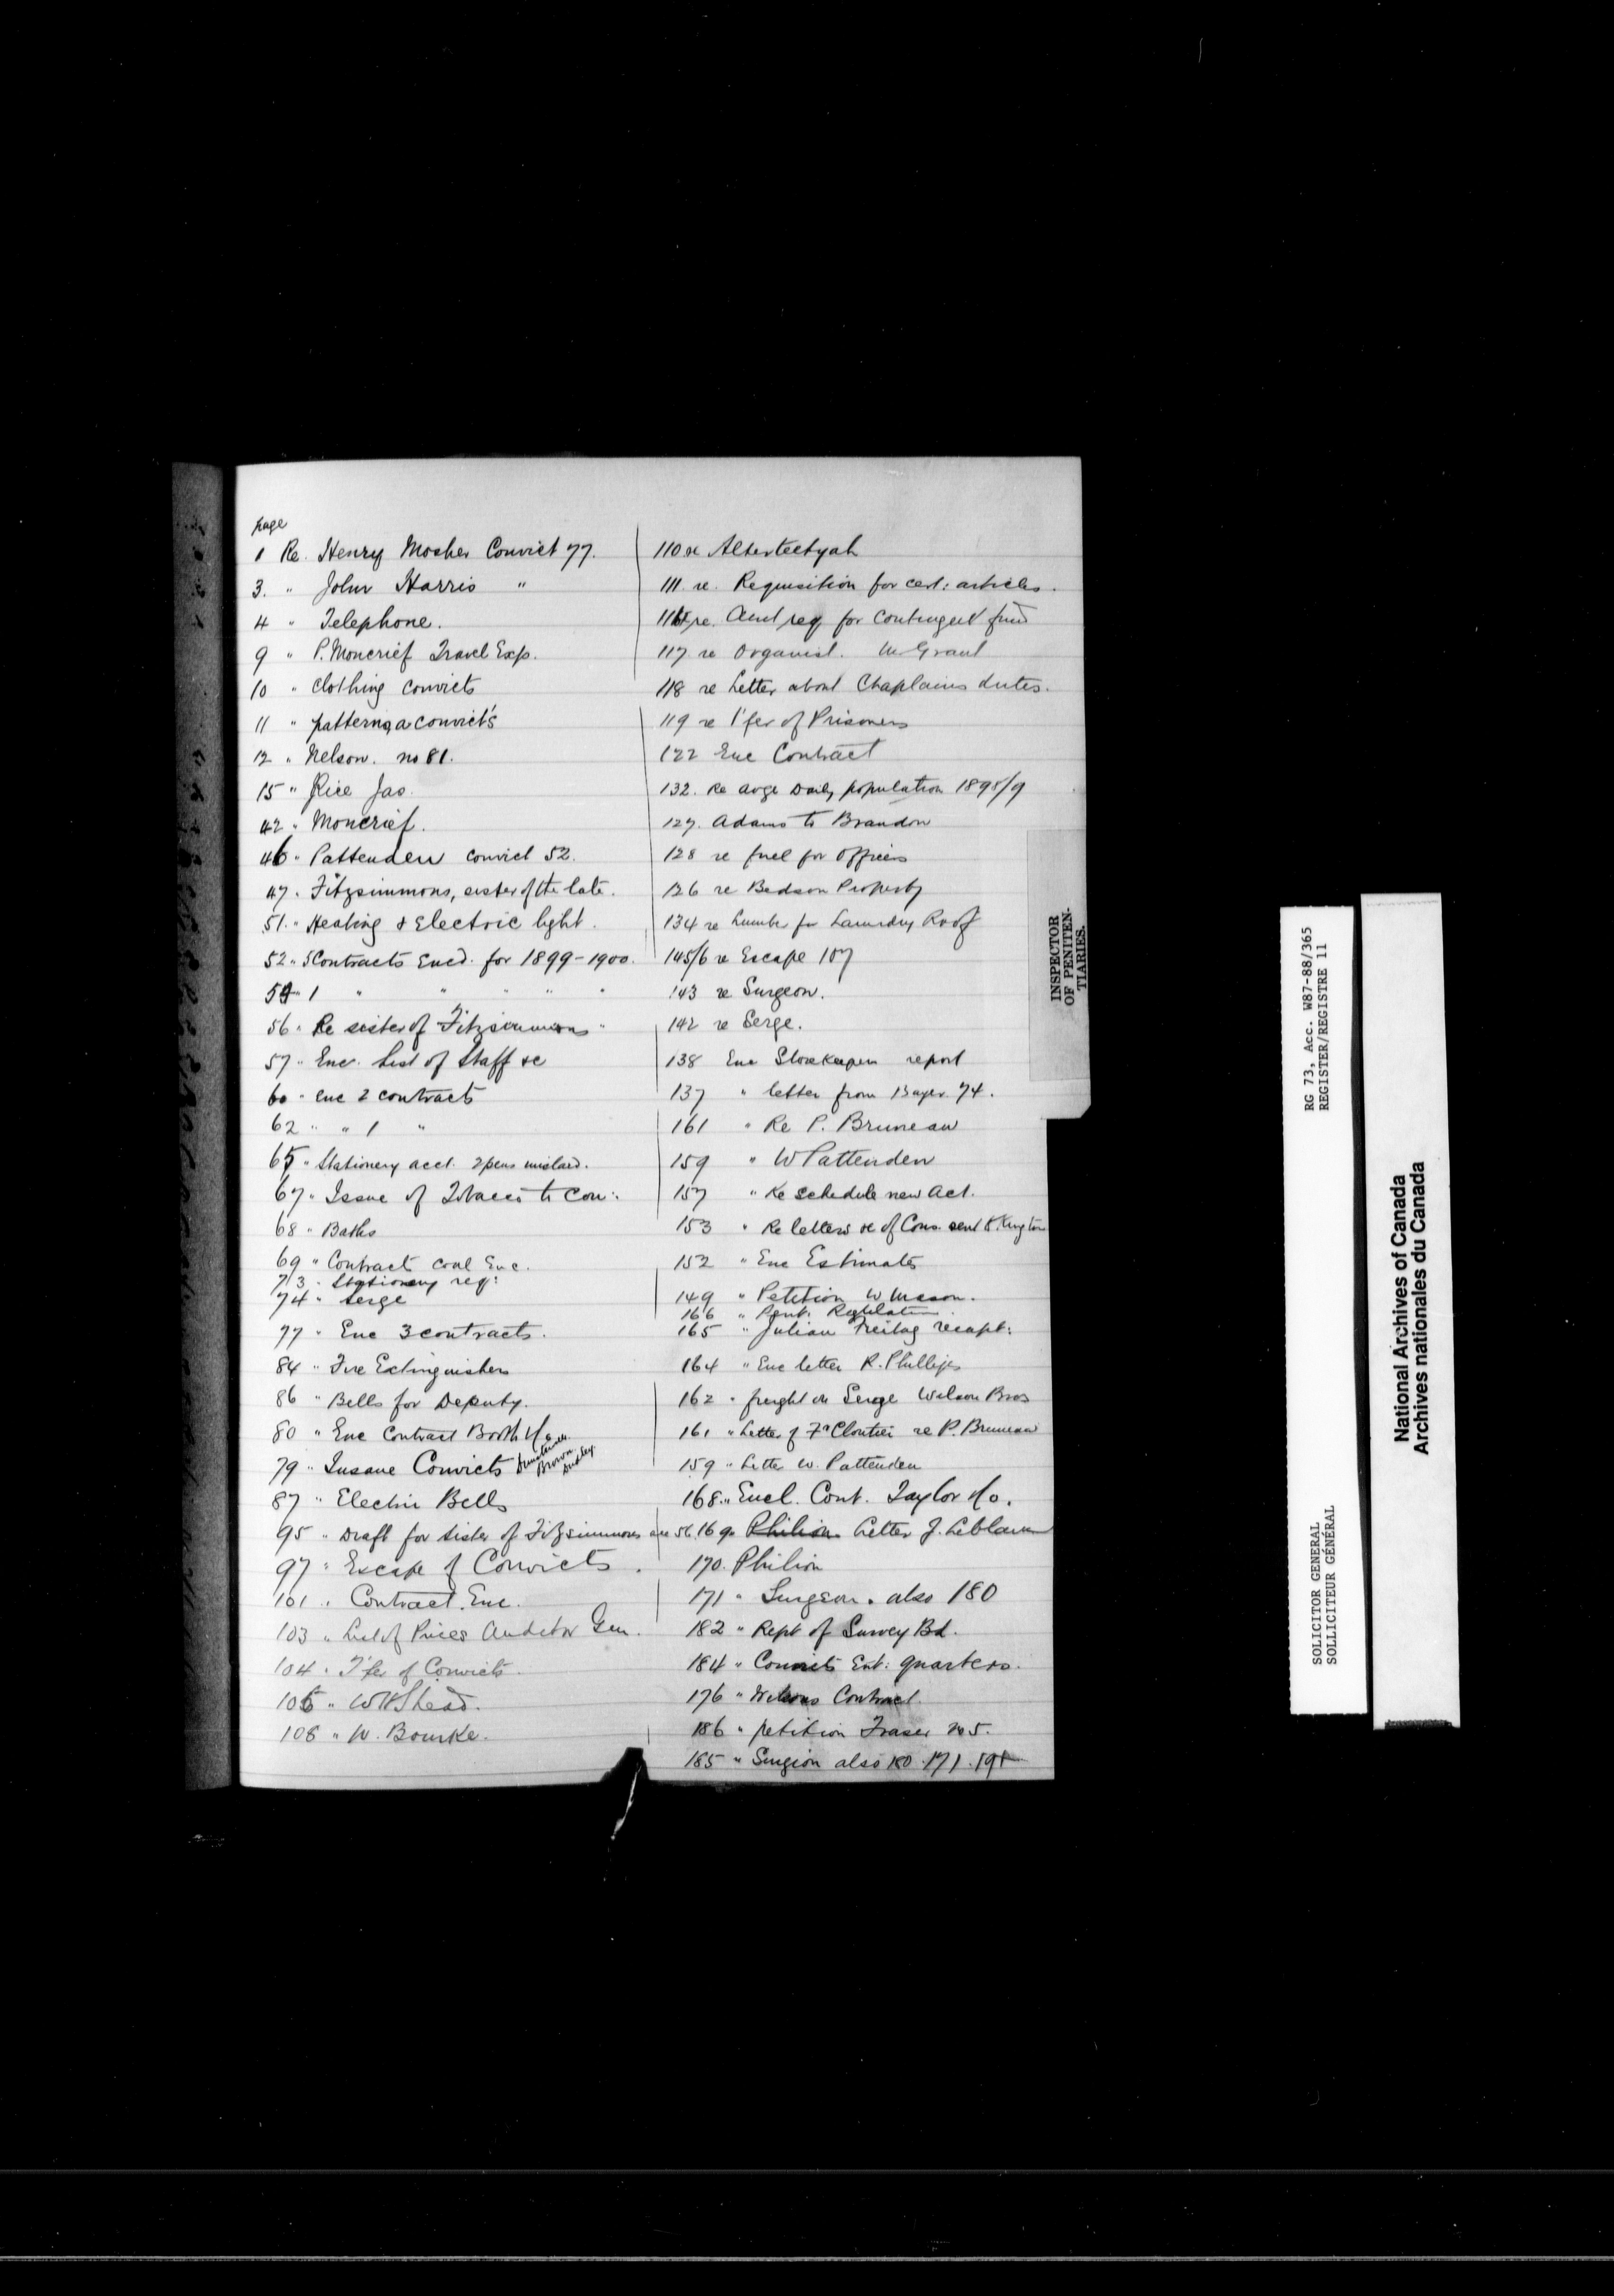 page
1 Re. Henry Mosher Convict 77.
3. " John Harris "
4 " Telephone.
9 " P. Moncrief Travel Exp.
10 " Clothing convicts
11 " patterns, a convict's
12 " Nelson. no 81.
15 " Rice Jas.
42 " Moncrief.
46 " Pattenden convict 52.
47 " Fitzsimmons, sister of the late.
51. " Heating & Electric light.
52 " 5 Contracts Encd. for 1899-1900.
54 " 1 " " " " "
56 " Re sister of Fitzsimmons "
57 " Enc. List of Staff &c
60 " enc 2 contracts
62 " " 1 "
65 " Stationery acct. 2 pens mislaid.
67 " Issue of Tobacco to Con:
68 " Baths
69 " Contract coal Enc.
73 " Stationery req:
74 " Serge
77 " Enc 3 contracts.
84 " Fire Extinguishers
86 " Bells for Deputy.
80 " Enc Contract Booth & Co.
79 " Insane Convicts Brown Dudley
87 " Electric Bells
95 " Draft for sister of Fitzsimmons see 56.
97 " Escape of Convicts.
101 " Contract. Enc.
103 " List of Prices Auditor Gen.
104 " T'fer of Convicts.
105 " W H Shead.
108 " W. Bourke.
110 re
111 re. Requisition for cert: articles.
re. req for contingent fund
117 re Organist. McGrant
118 re Letter about Chaplains duties.
119 re T'fer of Prisoners
122 Enc Contract
132. Re avge Daily population 1898/9
127. Adams to Brandon
128 re fuel for Officers
126 re Bedson Property
134 re Lumber for Laundry Roof
145/6 re Escape 107
143 re Surgeon.
142 re Serge.
138 Enc Storekeepers report
137 " letter from Bayer 74.
161 " Re P. Bruneau
159 " W Pattenden
157 " Re Schedule new Act.
153 " Re letters &c of Cons. sent K.ington
152 " Enc Estimates
149 " Petition W Mason.
166 " Pent. Regulations.
165 " Julian Freitag recapt:
164 " Enc letter R. Phillips
162 " freight on Serge Wilson Bros
161 " Letter of Fr Cloutier re P. Bruneau
159 " Letter W. Pattenden
168 " Encl. Cont. Taylor & Co.
169 " Philion Letter J. Leblanc
170. Philion
171 " Surgeon. also 180
182 " Rept of Survey Bd.
184 " Convicts Ent: quarters.
176 " Contract
186 " petition Fraser No 5.
185 " Surgeon also 180. 171. 191
INSPECTOR
OF PENITEN-
TIARIES.
RG 73, Acc. W87-88/365
REGISTER/REGISTRE 11
SOLICITOR GENERAL
SOLLICITEUR GÉNÉRAL
National Archives of Canada
Archives nationales du Canada